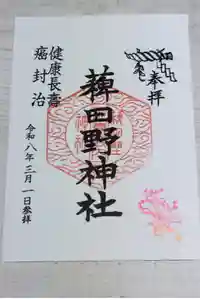 奉拝
薭田野神社
健康長寿
癌封治
令和八年三月一日参拝